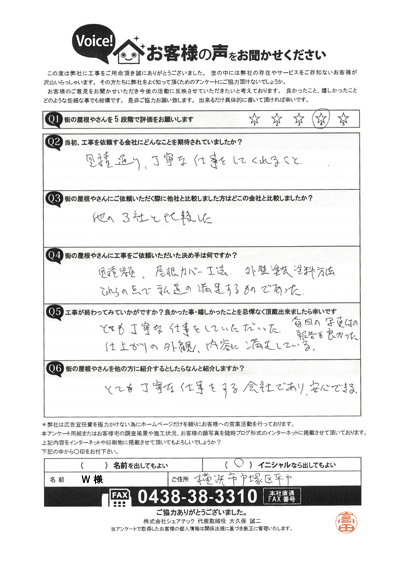 Voice!
お客様の声をお聞かせください
この度は弊社に工事をご用命頂き誠にありがとうございました。 世の中には弊社の存在やサービスをご存知ないお客様が
沢山いらっしゃいます。 その方たちに弊社をよく知って頂くためのアンケートにご協力頂けないでしょうか。
お客様のご意見をお聞かせいただき今後の活動に反映させていただきたいと考えております。 良かったこと、嬉しかったこと
どのような些細な事でも結構です。 是非ご協力お願い致します。 出来るだけ具体的に書いて頂ければ幸いです。
Q1 街の屋根やさんを5段階で評価をお願いします
Q2 当初、工事を依頼する会社にどんなことを期待されていましたか?
見積通り、丁寧な仕事をしてくれること。
Q3 街の屋根やさんにご依頼いただく際に他社と比較しました方はどこの会社と比較しましたか?
他の3社と比較した
Q4 街の屋根やさんに工事をご依頼いただいた決め手は何ですか?
見積額、屋根カバー工法、外壁塗装塗料方法
これらの点で私達の満足するものであった
Q5 工事が終わってみていかがですか? 良かった事・嬉しかったことを忌憚なく頂戴出来ましたら幸いです
とても丁寧な仕事をしていただいた。毎回の写真付の
報告も良かった
仕上がりの外観、内容に満足している。
Q6 街の屋根やさんを他の方に紹介するとしたらなんと紹介しますか?
とても丁寧な仕事をする会社であり、安心できる。
*弊社は広告宣伝費を極力かけない為にホームページだけを頼りにお客様への営業活動を行っております。
本アンケート用紙またはお客様宅の調査風景や施工状況、お客様の顔写真を随時ブログ形式のインターネットに掲載させて頂いております。
上記内容をインターネットや印刷物に掲載させて頂いてもよろしいでしょうか?
下記の中から〇印をお付下さい。
( ) 名前を出してもよい (〇) イニシャルなら出してもよい
名前 W様 ご住所 横浜市戸塚区平戸
FAX 0438-38-3310 本社直通 FAX番号
ご協力ありがとうございました。
株式会社シェアテック 代表取締役 大久保 誠二
当アンケートで取得したお客様の個人情報は関係法規に基づき厳正に管理いたします。